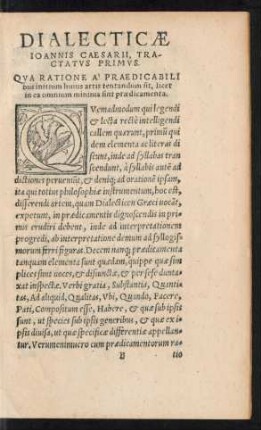 DIALECTICÆ
IOANNIS CAESARII, TRA,
CTATVS PRIMVS.
QVA RATIONE A' PRAEDICABILI
bus initium huius artis tentandum sit, licet
in ea omnium minima sint prædicamenta.
QVemadmodum qui legendi
& lecta rectè intelligendi
callem quærunt, primũ qui
dem elementa ac literas di
scunt, inde ad syllabas tran
scendunt, à syllabis autẽ ad
dictiones perueniũt, & deniq; ad orationẽ ipsam,
ita qui totius philosophiæ instrumentum, hoc est,
disserendi artem, quam Dialecticen Græci uocãt,
expetunt, in prædicamentis dignoscendis in pri
mis erudiri debent, inde ad interpretationem
progredi, ab interpretatione demum ad syllogis
morum ferri figuras. Decem nanq; prædicamenta
tanquam elementa sunt quædam, quippe quæ sim
plices sint uoces, & disiunctæ, & per sese dunta
xat inspectæ. Verbi gratia, Substantia, Quanti
tas, Ad aliquid, Qualitas, Vbi, Quando, Facere,
Pati, Compositum esse, Habere, & quæ sub ipsis
sunt, ut species sub ipsis generibus, & quæ ex i
psis diuisa, ut quæ specificæ differentiæ appellan
tur. Verumenimuero cum prædicamentorum ra,
B tio